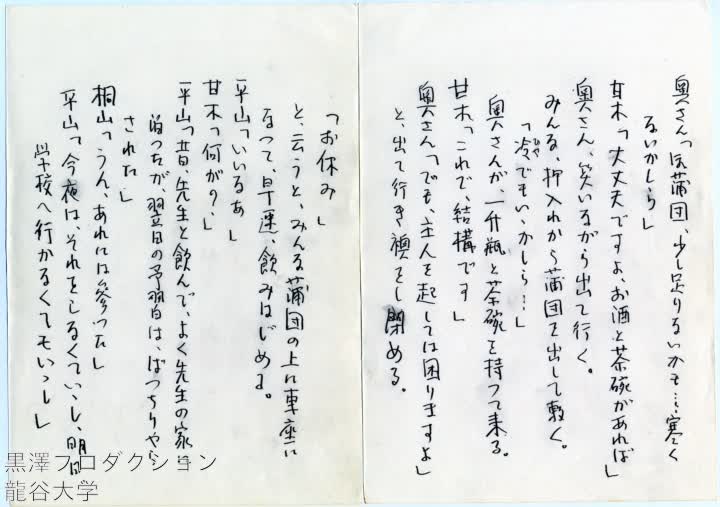 奥さん「お蒲団、少し足りないかも…寒く
ないかしら」
甘木「大丈夫ですよ、お酒と茶碗があれば」
奥さん、笑いながら出て行く。
みんな、押入れから蒲団を出して敷く。
「冷でもいゝかしら…」
奥さんが、一升瓶と茶碗を持つて来る。
甘木「これで、結構です」
奥さん「でも、主人を起しては困りますよ」
と、出て行き襖をし閉める。
「お休み」
と、云うと、みんな蒲団の上に車座に
なつて、早速、飲みはじめる。
平山「いいなあ」
甘木「何が?」
平山「昔、先生と飲んで、よく先生の家に
泊つたが、翌日の予習は、ばつちりやら
された」
桐山「うん、あれには参つた」
平山「今夜は、それをしなくていゝし、明日
学校へ行かなくてもいゝし」
黒澤プロダクション
龍谷大学